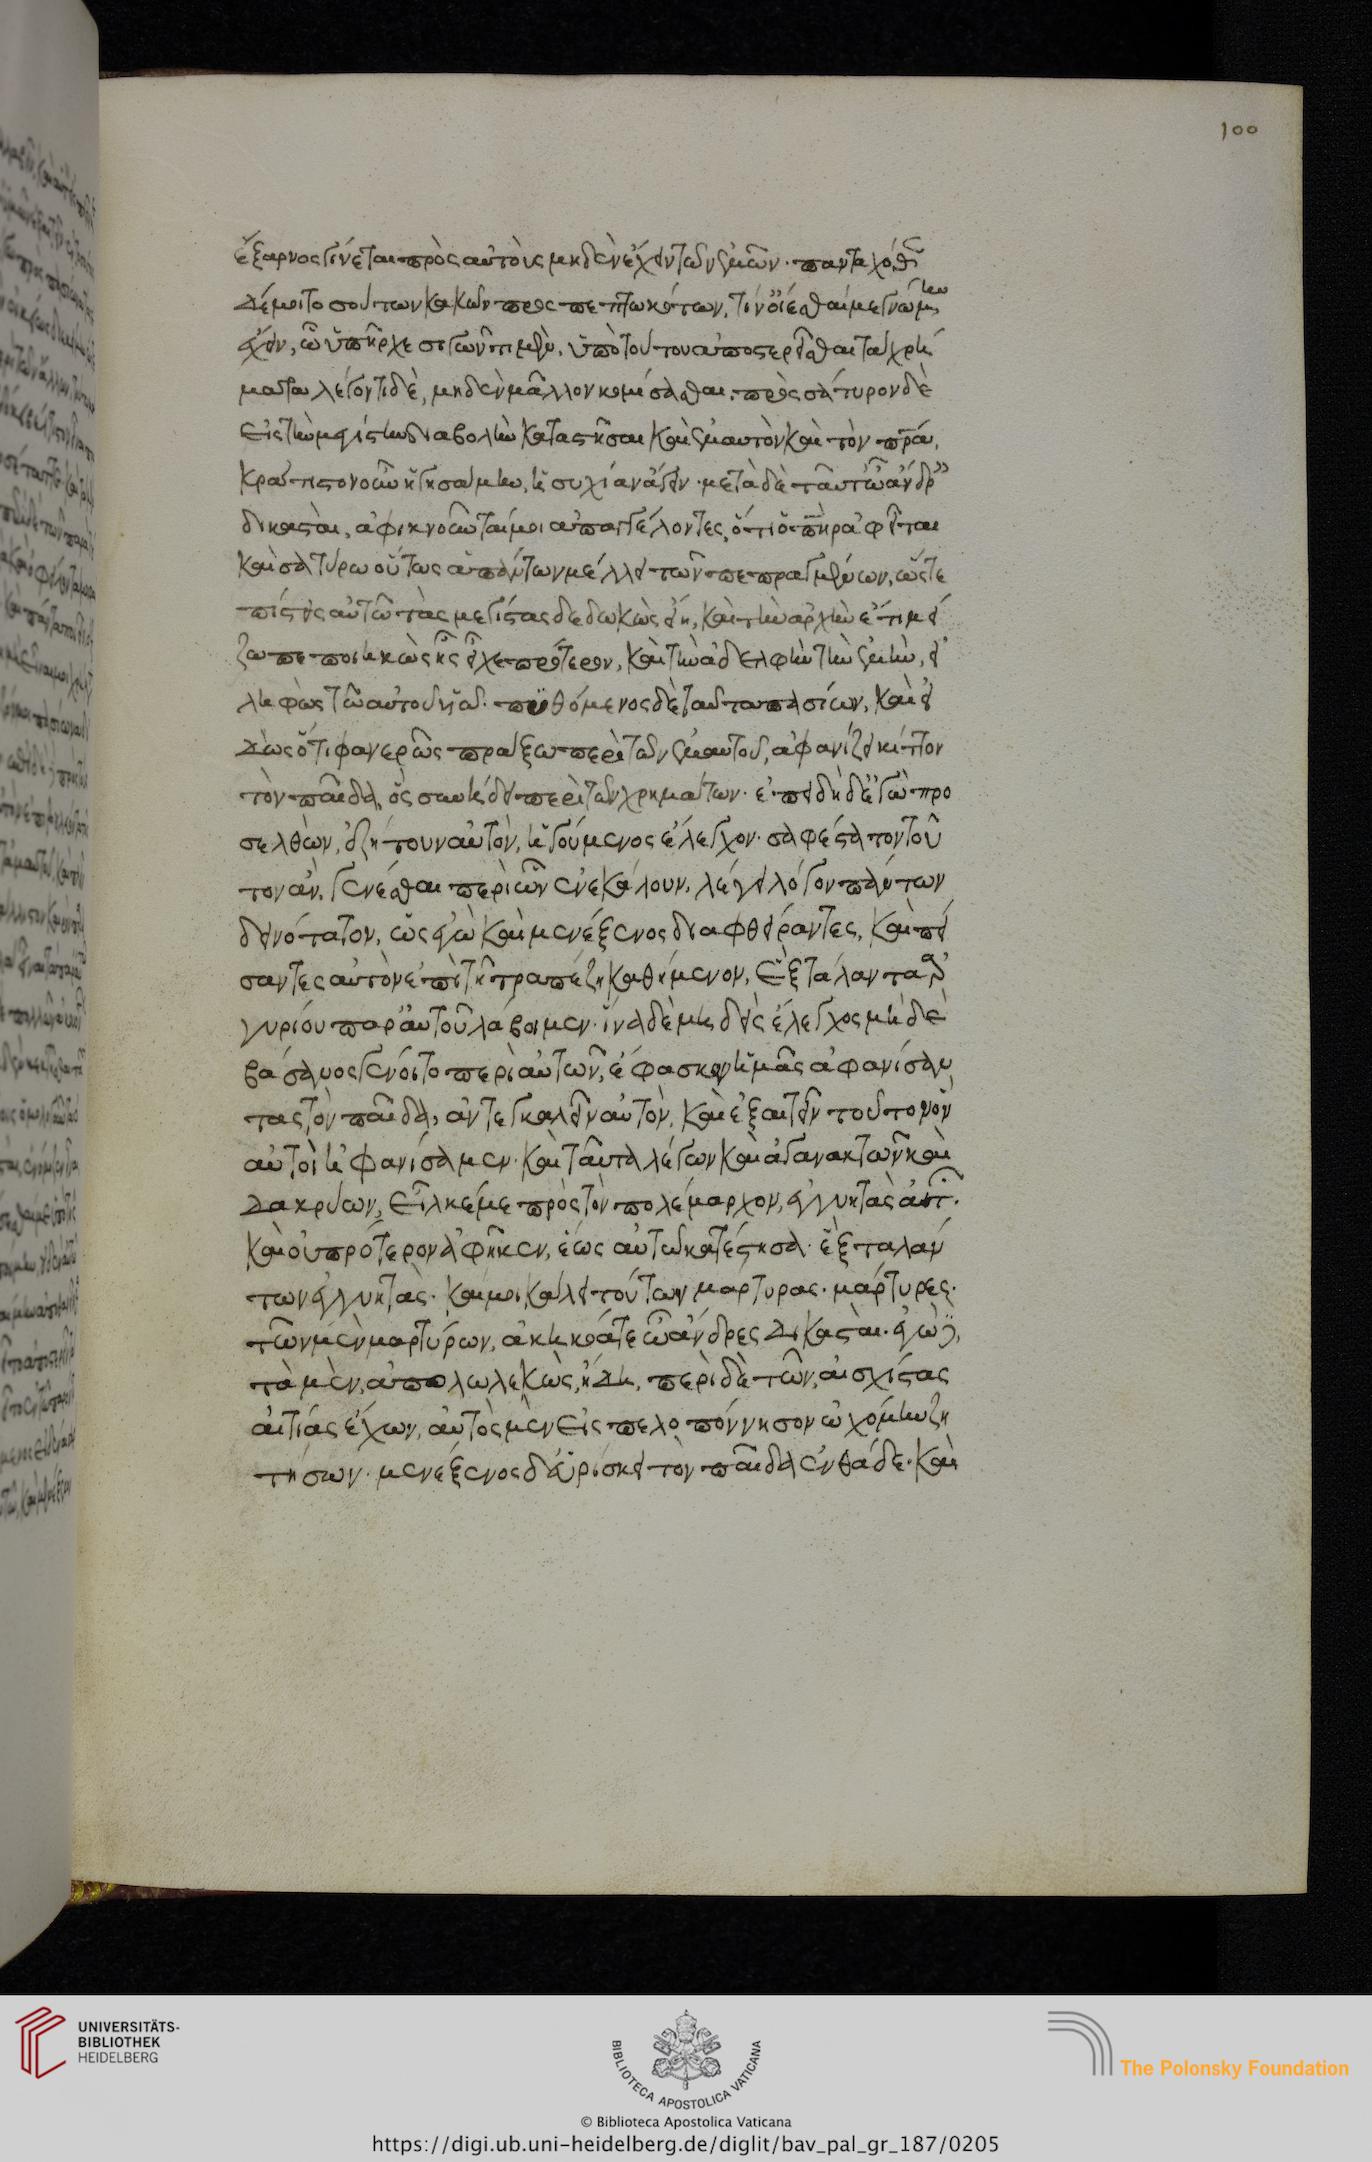 100
ἔξαρνος γίνεται πρὸς αὐτοὺς μηδὲν ἔχειν τῶν ἐμῶν· πανταχόθεν
δέ μοι τοσούτων κακῶν προσπεπτωκότων, τίν' οἴεσθαί με γνώμην
ἔχειν, ὧ ὑπῆρχε σιγῶντι μὲν, ὑπὸ τούτου ἀποστερεῖσθαι τῶν χρη
μάτων λέγοντι δὲ, μηδὲν μᾶλλον κομίσασθαι. πρὸς σάτυρον δὲ
εἰς τὴν μεγίστην διαβολὴν καταστῆσαι καὶ ἐμαυτὸν καὶ τὸν πρα,
κράτιστον οὖν ἡγησάμην, ἡσυχίαν ἄγειν· μετὰ δὲ ταῦτ' ὦ ἄνδρες
δικασταὶ, ἀφικνοῦνταί μοι ἀπαγγέλοντες, ὅτι ὁ πηρ ἀφεῖται
καὶ σατύρω οὕτως ἁπάντων μέλλει τῶν πεπραγμένων, ὥστε
πίστεις αὐτῶ τὰς μεγίστας δεδωκὼς εἴη, καὶ τὴν ἀρχὴν ἔτι μεί
ζω πεποιηκὼς ἧς εἶχε πρότερον, καὶ τὴν ἀδελφὴν τὴν ἐμὴν, εἰ
ληφὼς τῶ αὐτοῦ υἱῶ. πυθόμενος δὲ ταῦτα πασίων, καὶ εἰ
δὼς ὅτι φανερῶς πράξω περὶ τῶν ἐμαυτοῦ, ἀφανίζει κίττον
τὸν παῖδα, ὃς συνήδει περὶ τῶν χρημάτων. ἐπειδὴ δ' ἐγὼ προ
σελθὼν, ἐζήτουν αὐτὸν, ἡγούμενος ἔλεγχον· σαφέστατον τοῦ
τον ἂν γενέσθαι περὶ ὧν ἐνεκάλουν, λέγει λόγον πάντων
δεινότατον, ὡς ἐγὼ καὶ μενέξενος διαφθείραντες, καὶ πεί
σαντες αὐτὸν ἐπὶ τῆ τραπέζη καθήμενον, ἓξ τάλαντα ἀρ
γυρίου παρ' αὐτοῦ λάβοιμεν· ἵνα δὲ μηδεὶς ἔλεγχος μηδὲ
βάσανος γένοιτο περὶ αὐτῶν, ἔφασκεν ἡμᾶς ἀφανίσαν
τας τὸν παῖδα, ἀντεγκαλεῖν αὐτὸν, καὶ ἐξαιτεῖν τοῦτον ὃν
αὐτοὶ ἠφανίσαμεν· καὶ ταῦτα λέγων καὶ ἀγανακτῶν καὶ
δακρύων, εἷλκέ με πρὸς τὸν πολέμαρχον, ἐγγυητὰς αἰτῶν.
καὶ οὐ πρότερον ἀφῆκεν, ἕως αὐτῶ κατέστησα· ἓξ ταλάν
των ἐγγυητὰς. καί μοι κάλει τούτων μάρτυρας. μάρτυρες.
τῶν μὲν μαρτύρων, ἀκηκόατε ὦ ἄνδρες δικασταὶ. ἐγὼ δὲ,
τὰ μὲν, ἀπολωλεκὼς, ἤδη, περὶ δὲ τῶν, αἰσχίστας
αἰτίας ἔχων, αὐτὸς μὲν εἰς πελοπόννησον ᾠχόμην ζη
τήσων. μενέξενος δ' εὑρίσκει τὸν παῖδα ἐνθάδε. καὶ
UNIVERSITÄTS-
BIBLIOTHEK
HEIDELBERG
BIBLIOTECA APOSTOLICA VATICANA
© Biblioteca Apostolica Vaticana
The Polonsky Foundation
https://digi.ub.uni-heidelberg.de/diglit/bav_pal_gr_187/0205